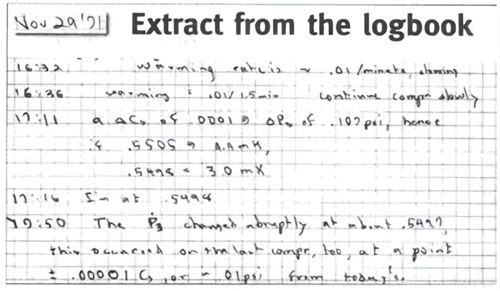 Nov 29 '71 Extract from the logbook
16:32 warming rate is ~ .01/minute, slowing
16:36 warming .01/1.5 min continue compr slowly
17:11 a ΔC₃ of .0001 ⇒ ΔP₃ of .107 psi, hence
.5505 ⇒ mK,
.5498 = 3.0 mK
17:16 I'm at .5498
17:50 The Ṗ₃ changed abruptly at about .5497,
this occurred on the last compr, too, at a point
± .00001 C₃, or ~ .01 psi from today's.